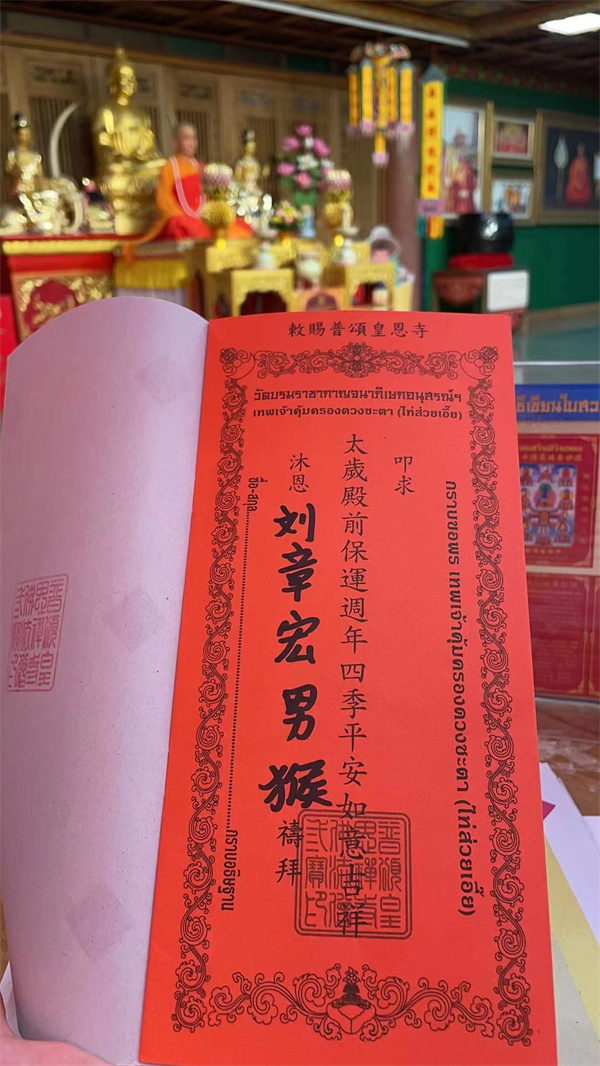 敕賜普頌皇恩寺
วัดบรมราชากาญจนาภิเษกอนุสรณ์ฯ
เทพเจ้าคุ้มครองดวงชะตา (ไท่ส่วยเอี้ย)
กราบขอพร เทพเจ้าคุ้มครองดวงชะตา (ไท่ส่วยเอี้ย)
叩求
太歲殿前保運週年四季平安如意吉祥
沐恩 刘章宏男猴 禱拜
ชื่อ-สกุล........................................กราบอธิษฐาน